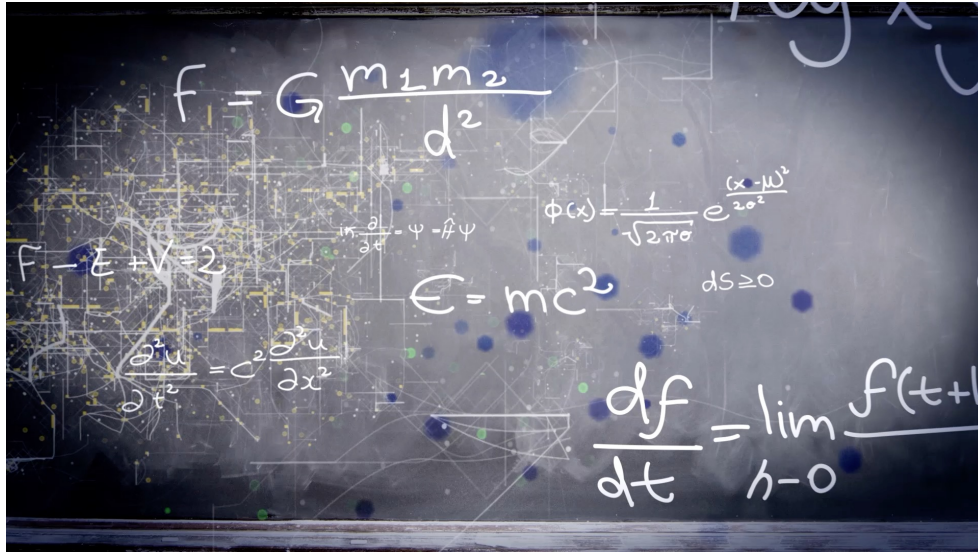 log x y
F = G m1m2 / d²
φ(x) = 1 / √2πσ e (x-μ)² / 2σ²
iħ ∂/∂t = ψ = Ĥψ
F - E + V = 2
E = mc²
dS ≥ 0
∂²u / ∂t² = c² ∂²u / ∂x²
df / dt = lim h-0 f(t+